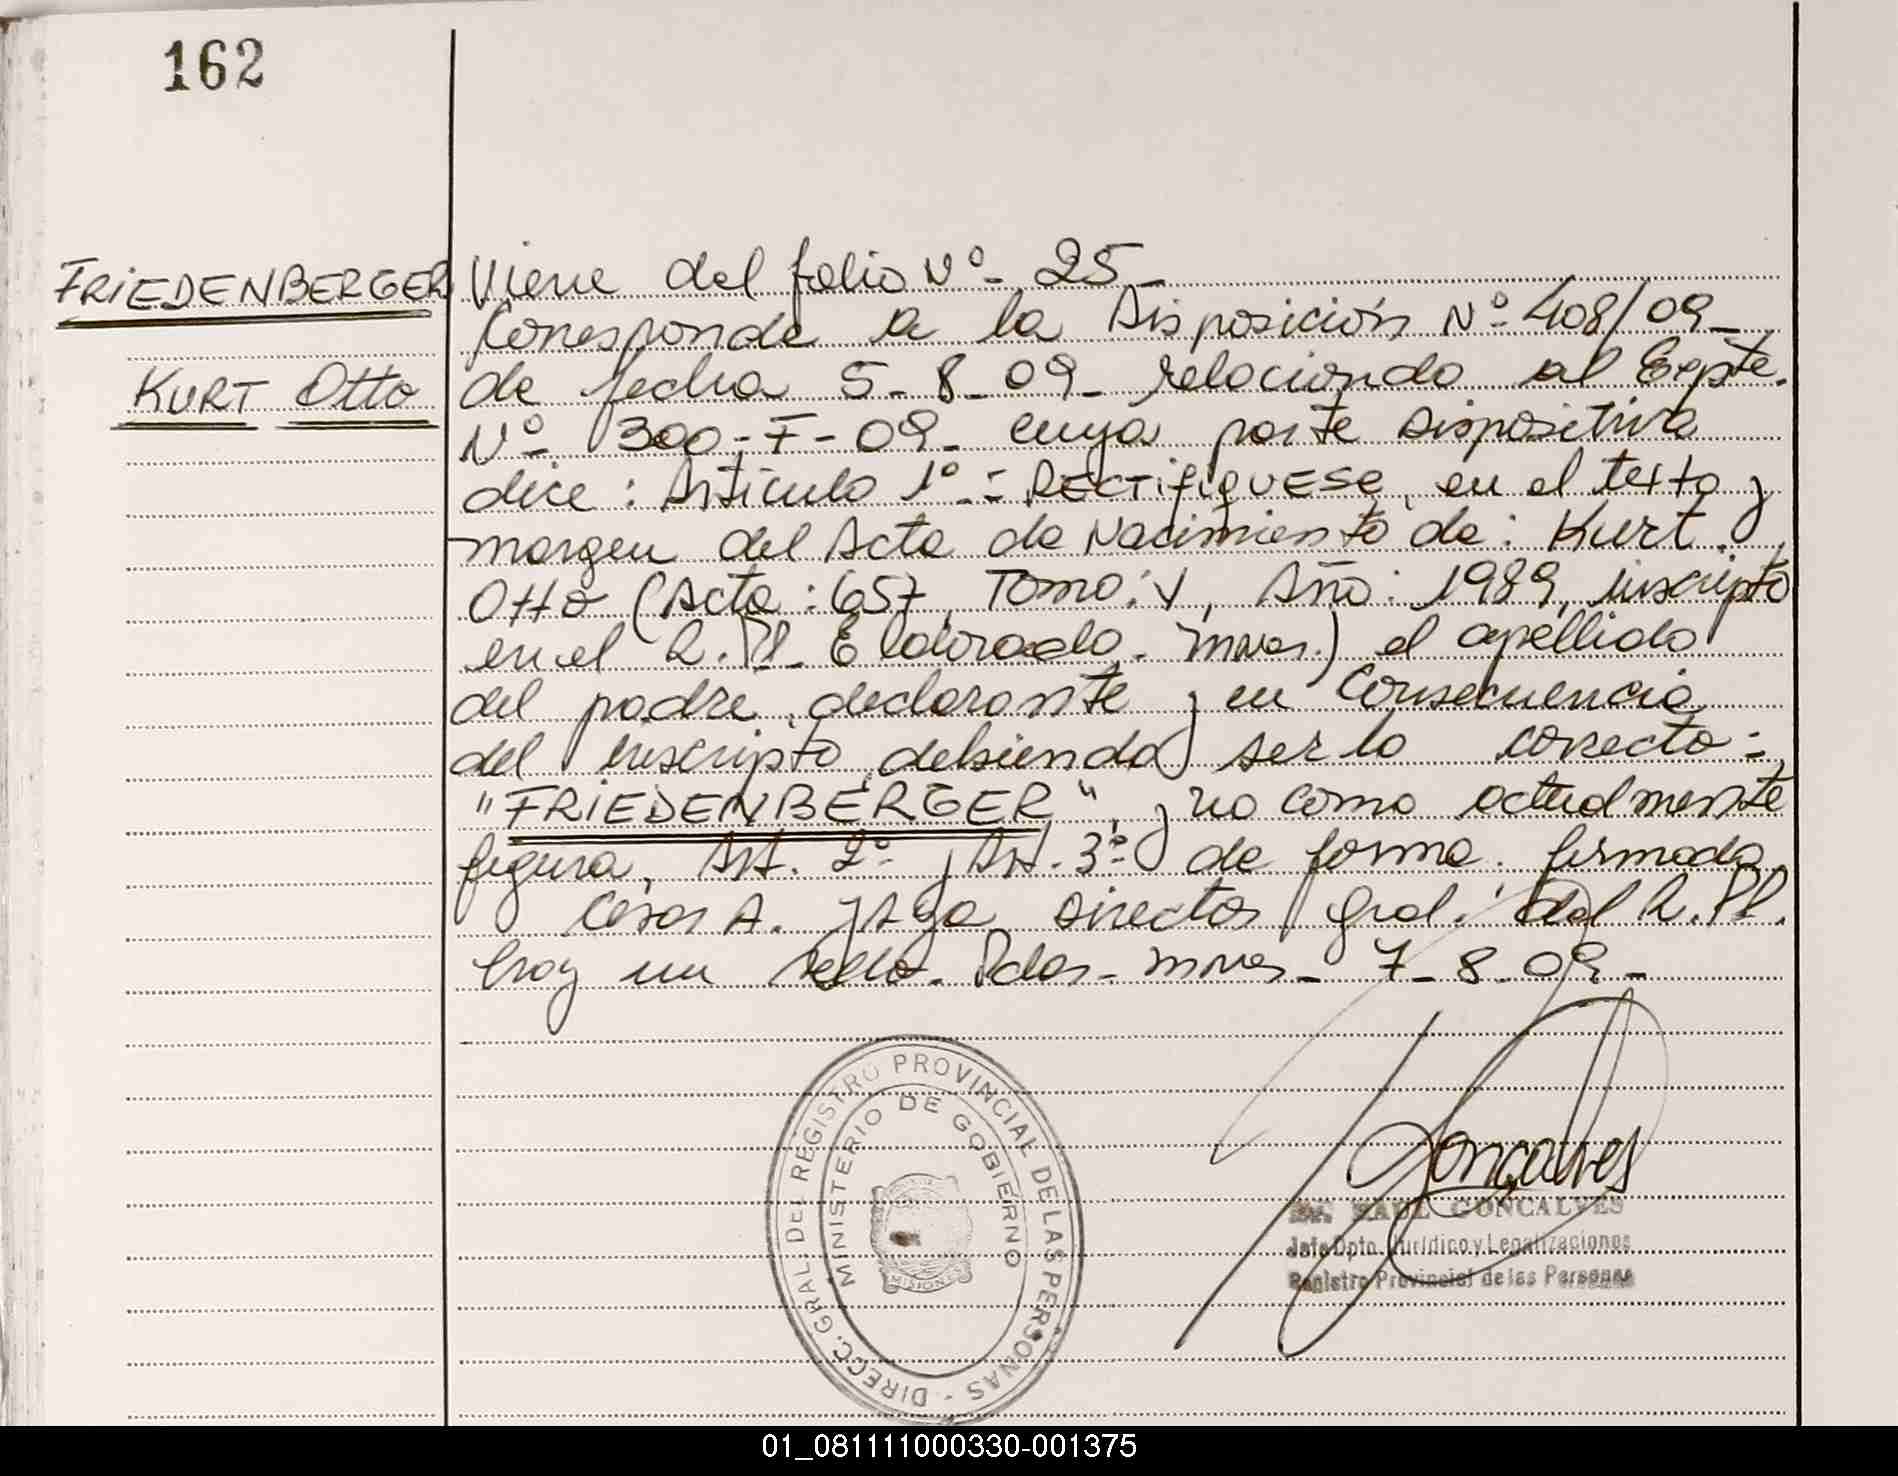 162
FRIEDENBERGER
KURT Otto
Viene del folio Nº- 25-
Corresponde a la Disposición Nº- 408/09-
de fecha 5-8-09- relacionado al Expte.
Nº- 300-F-09- cuya parte dispositiva
dice: Artículo 1º.- RECTIFIQUESE, en el texto y
margen del Acta de Nacimiento de: Kurt
Otto (Acta: 657, Tomo: V, Año: 1989, inscripto
en el R.P.P. Eldorado. Mnes.) el apellido
del padre declarante y en consecuencia
del inscripto, debiendo ser lo correcto:
"FRIEDENBERGER", y no como actualmente
figura. Art. 2º- y Art. 3º- de forma. firmado
César A. Directos Gral. del R.P.P.
hay un sello. Pdas. Mnes- 7-8-09-
DIRECC. GRAL. DEL REGISTRO PROVINCIAL DE LAS PERSONAS -
MINISTERIO DE GOBIERNO
MISIONES
Goncalves
RAUL GONCALVES
Jefe Dpto. Jurídico y Legalizaciones
Registro Provincial de las Personas
01_081111000330-001375